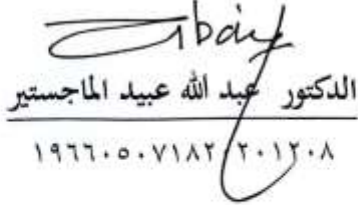 الدكتور عبد الله عبيد الماجستير
١٩٦٦٠٥٠٧١٨٢ ٢٠١٢٠٨